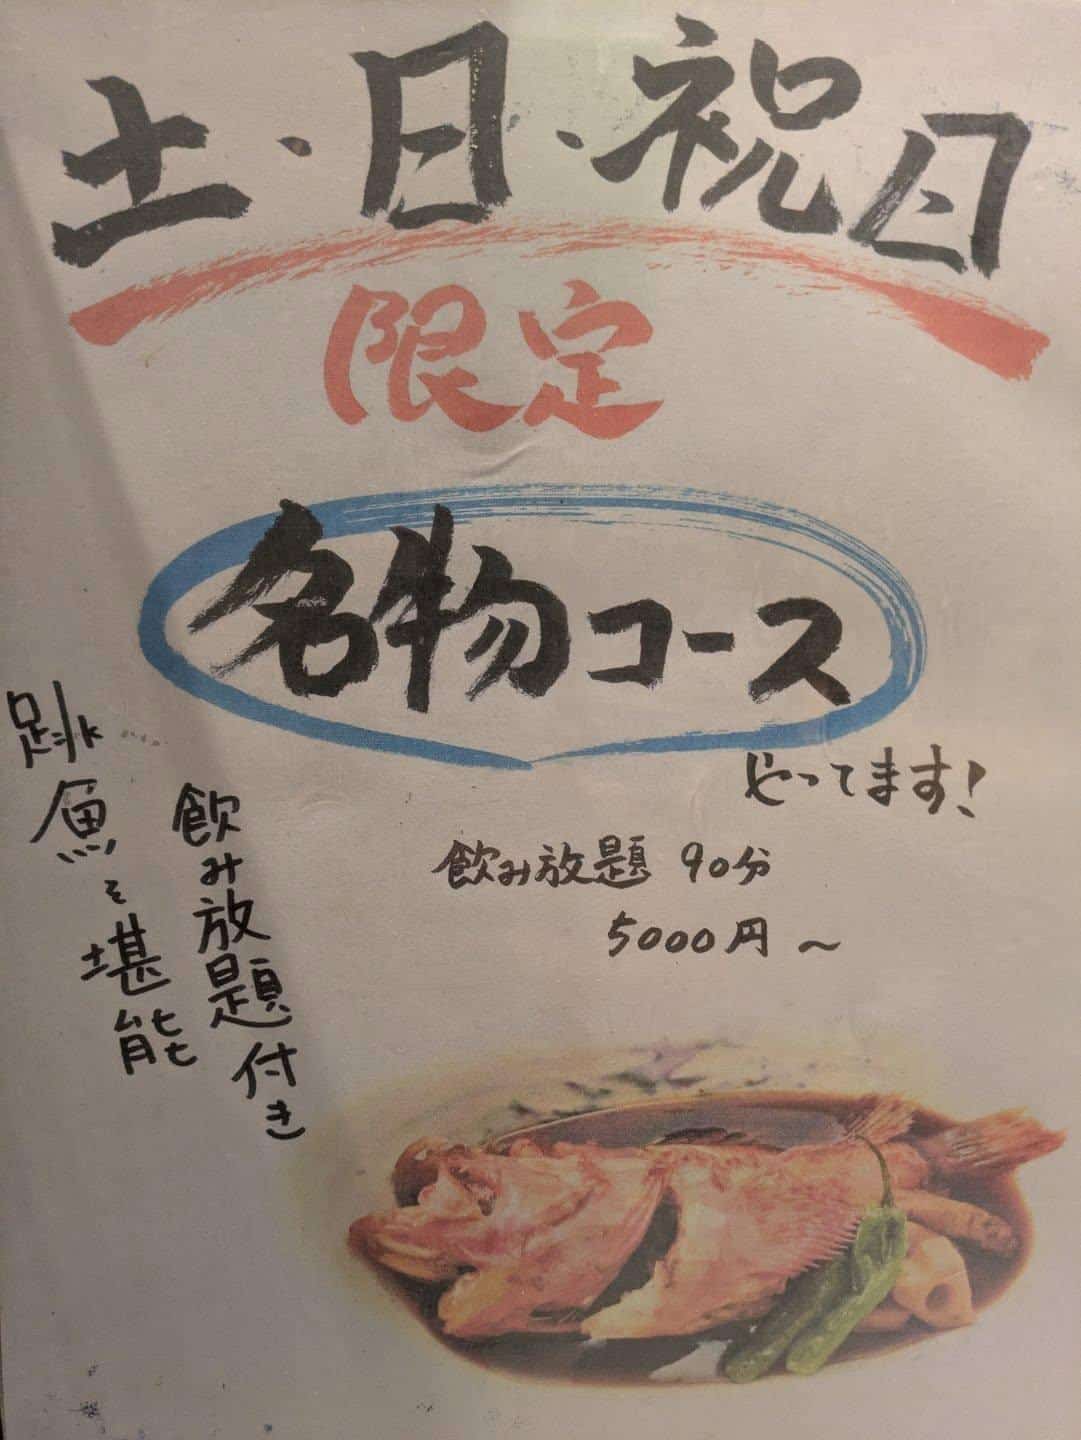 土・日・祝日
限定
名物コース
やってます!
飲み放題 90分
5000円～
跳魚を堪能
飲み放題付き